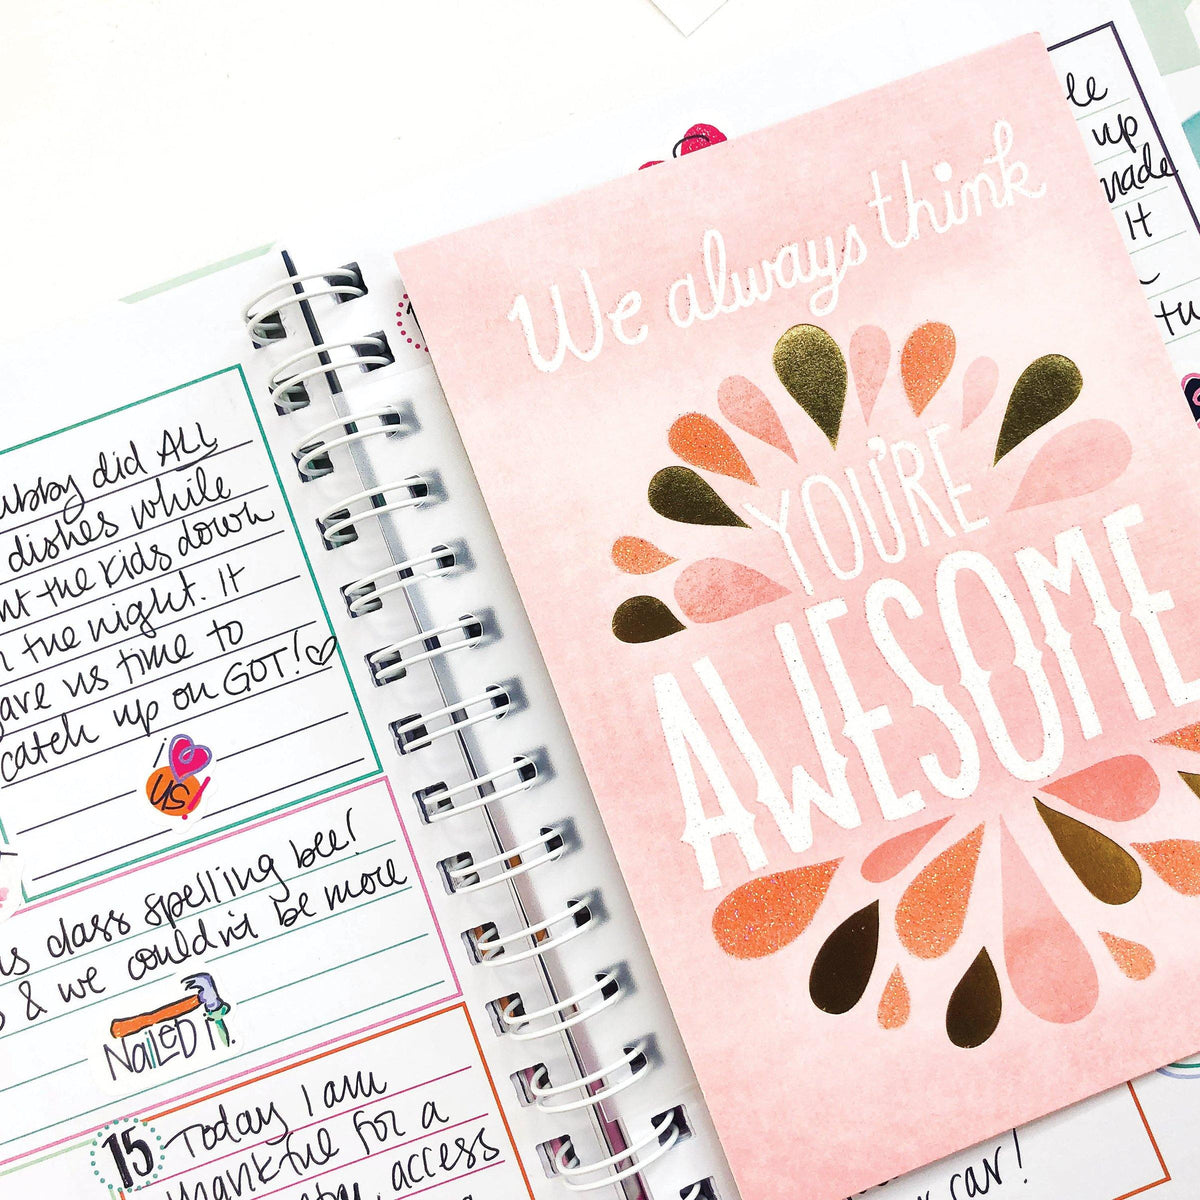 ubby did ALL
dishes while
nt the kids down
the night. It
gave us time to
catch up on GOT!
US!
class spelling bee!
& we couldn't be more
NAILED IT!
15 Today I am
thankful for a
access
We always think
YOU'RE
AWESOME
le
up
made
It
tu
car!